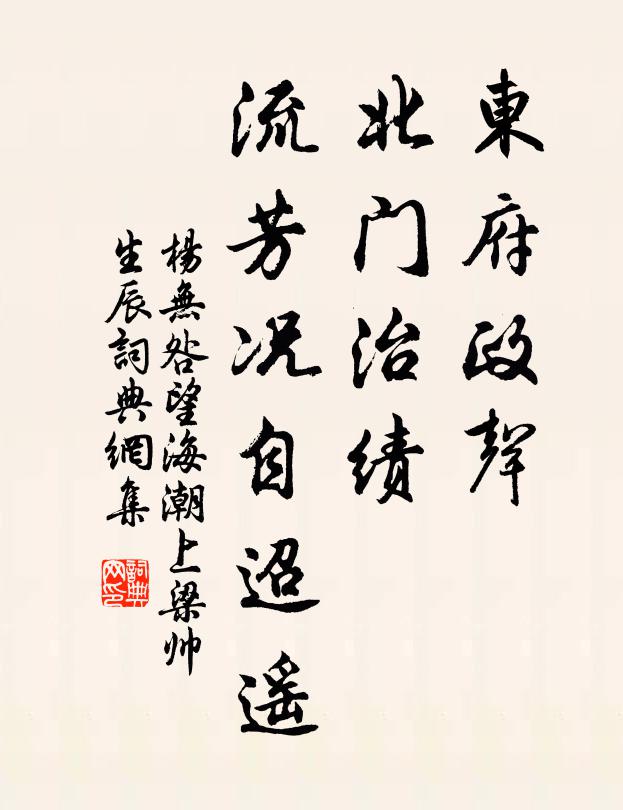 東府政聲
北门治績
流芳况自迢遥
楊無咎望海潮上梁帅
生辰詞典網集
詞典
网印